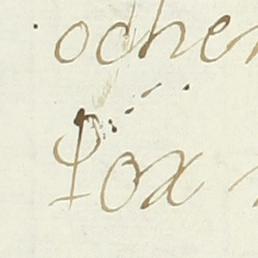 oche
Pox